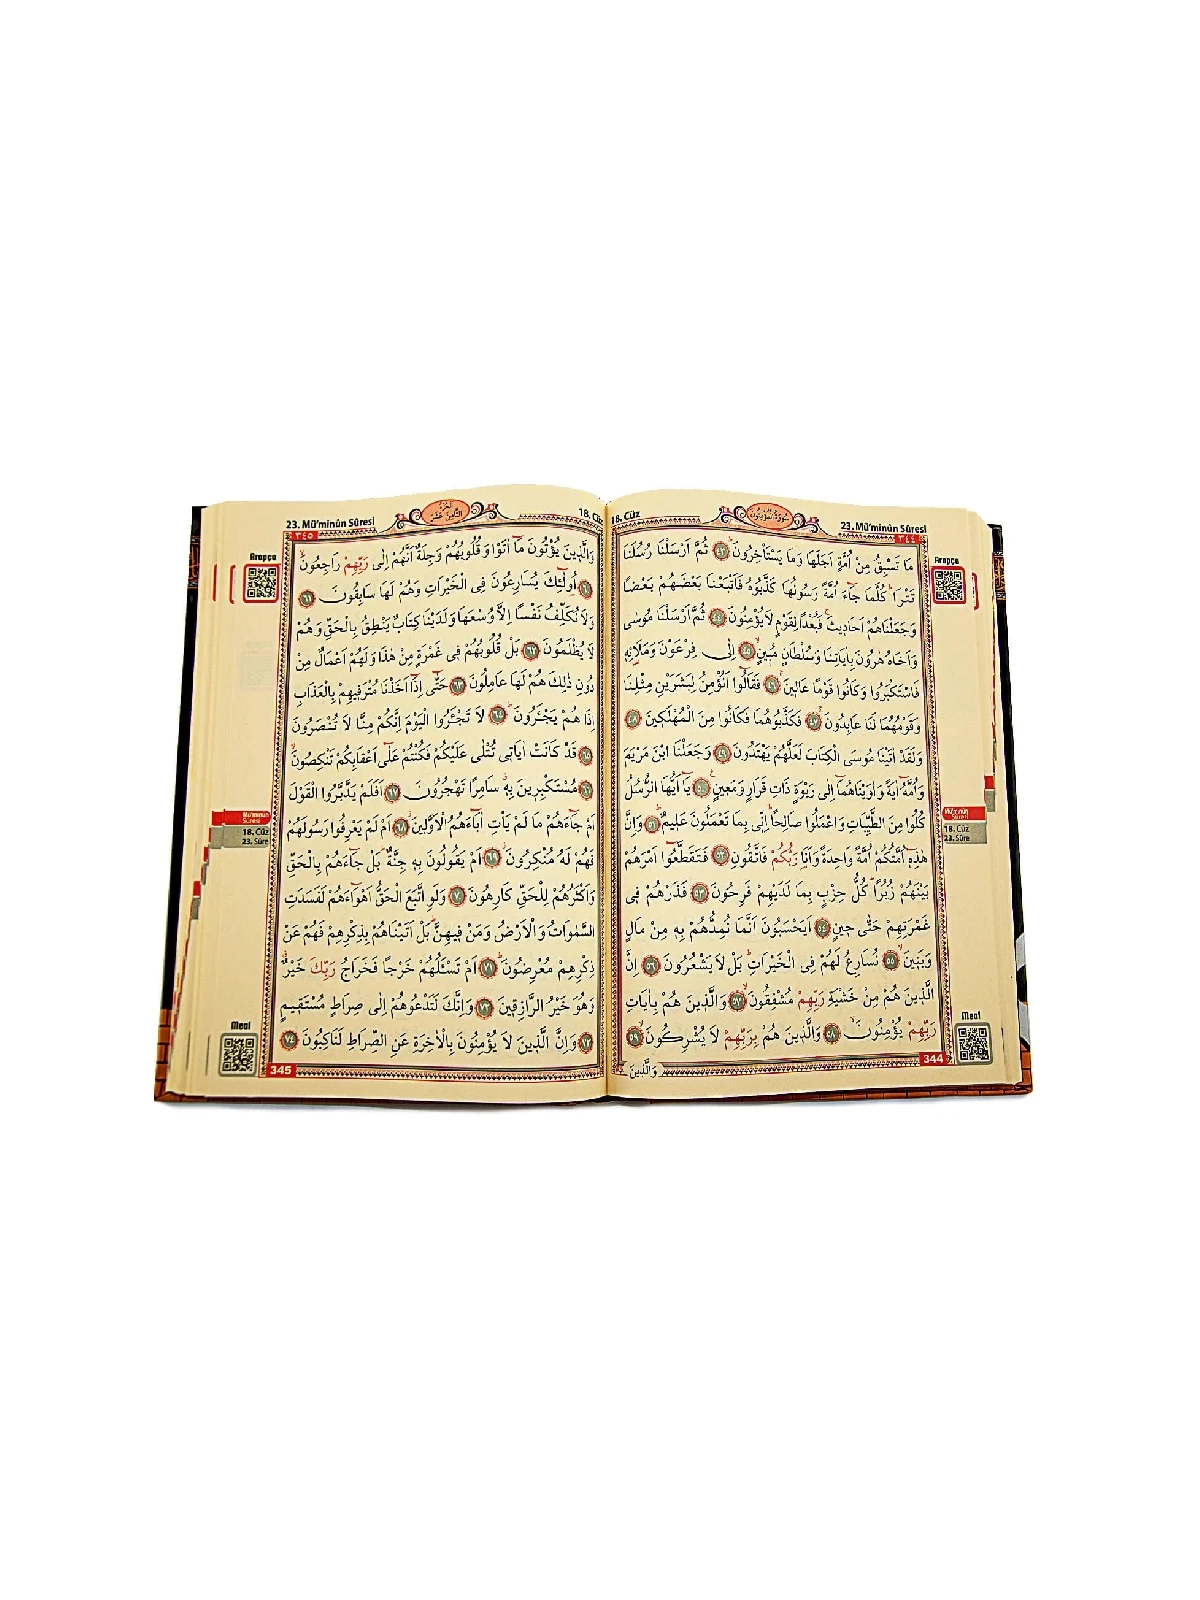 23. Mü'minûn Sûresi
18. Cüz
سورة المؤمنون
٣٤٤
Arapça
مَا تَسْبِقُ مِنْ اُمَّةٍ اَجَلَهَا وَمَا يَسْتَأْخِرُونَۜ ﴿٤٣﴾ ثُمَّ اَرْسَلْنَا رُسُلَنَا
تَتْرَاۜ كُلَّمَا جَٓاءَ اُمَّةً رَسُولُهَا كَذَّبُوهُ فَاَتْبَعْنَا بَعْضَهُمْ بَعْضًا
وَجَعَلْنَاهُمْ اَحَاد۪يثَۚ فَبُعْدًا لِقَوْمٍ لَا يُؤْمِنُونَ ﴿٤٤﴾ ثُمَّ اَرْسَلْنَا مُوسٰى
وَاَخَاهُ هٰرُونَ بِاٰيَاتِنَا وَسُلْطَانٍ مُب۪ينٍۙ ﴿٤٥﴾ اِلٰى فِرْعَوْنَ وَمَلَا۬ئِه۪
فَاسْتَكْبَرُوا وَكَانُوا قَوْمًا عَال۪ينَۚ ﴿٤٦﴾ فَقَالُٓوا اَنُؤْمِنُ لِبَشَرَيْنِ مِثْلِنَا
وَقَوْمُهُمَا لَنَا عَابِدُونَۚ ﴿٤٧﴾ فَكَذَّبُوهُمَا فَكَانُوا مِنَ الْمُهْلَك۪ينَ ﴿٤٨﴾
وَلَقَدْ اٰتَيْنَا مُوسَى الْكِتَابَ لَعَلَّهُمْ يَهْتَدُونَ ﴿٤٩﴾ وَجَعَلْنَا ابْنَ مَرْيَمَ
وَاُمَّهُٓ اٰيَةً وَاٰوَيْنَاهُمَٓا اِلٰى رَبْوَةٍ ذَاتِ قَرَارٍ وَمَع۪ينٍ۟ ﴿٥٠﴾ يَٓا اَيُّهَا الرُّسُلُ
كُلُوا مِنَ الطَّيِّبَاتِ وَاعْمَلُوا صَالِحًاۜ اِنّ۪ي بِمَا تَعْمَلُونَ عَل۪يمٌۜ ﴿٥١﴾ وَاِنَّ
هٰذِه۪ٓ اُمَّتُكُمْ اُمَّةً وَاحِدَةً وَاَنَا۬ رَبُّكُمْ فَاتَّقُونِ ﴿٥٢﴾ فَتَقَطَّعُٓوا اَمْرَهُمْ
بَيْنَهُمْ زُبُرًاۜ كُلُّ حِزْبٍ بِمَا لَدَيْهِمْ فَرِحُونَ ﴿٥٣﴾ فَذَرْهُمْ ف۪ي
غَمْرَتِهِمْ حَتّٰى ح۪ينٍ ﴿٥٤﴾ اَيَحْسَبُونَ اَنَّمَا نُمِدُّهُمْ بِه۪ مِنْ مَالٍ
وَبَن۪ينَۙ ﴿٥٥﴾ نُسَارِعُ لَهُمْ فِي الْخَيْرَاتِۜ بَلْ لَا يَشْعُرُونَ ﴿٥٦﴾ اِنَّ
الَّذ۪ينَ هُمْ مِنْ خَشْيَةِ رَبِّهِمْ مُشْفِقُونَۙ ﴿٥٧﴾ وَالَّذ۪ينَ هُمْ بِاٰيَاتِ
رَبِّهِمْ يُؤْمِنُونَۙ ﴿٥٨﴾ وَالَّذ۪ينَ هُمْ بِرَبِّهِمْ لَا يُشْرِكُونَۙ ﴿٥٩﴾
وَالَّذ۪ينَ
Mü'minûn
Sûresi
18. Cüz
23. Sûre
Meal
344
18. Cüz
23. Mü'minûn Sûresi
٣٤٥
Arapça
وَالَّذ۪ينَ يُؤْتُونَ مَٓا اٰتَوْا وَقُلُوبُهُمْ وَجِلَةٌ اَنَّهُمْ اِلٰى رَبِّهِمْ رَاجِعُونَۙ
﴿٦٠﴾ اُو۬لٰٓئِكَ يُسَارِعُونَ فِي الْخَيْرَاتِ وَهُمْ لَهَا سَابِقُونَ ﴿٦١﴾
وَلَا نُكَلِّفُ نَفْسًا اِلَّا وُسْعَهَا وَلَدَيْنَا كِتَابٌ يَنْطِقُ بِالْحَقِّ وَهُمْ
لَا يُظْلَمُونَ ﴿٦٢﴾ بَلْ قُلُوبُهُمْ ف۪ي غَمْرَةٍ مِنْ هٰذَا وَلَهُمْ اَعْمَالٌ مِنْ
دُونِ ذٰلِكَ هُمْ لَهَا عَامِلُونَ ﴿٦٣﴾ حَتّٰٓى اِذَٓا اَخَذْنَا مُتْرَف۪يهِمْ بِالْعَذَابِ
اِذَا هُمْ يَجْـَٔرُونَۜ ﴿٦٤﴾ لَا تَجْـَٔرُوا الْيَوْمَ اِنَّكُمْ مِنَّا لَا تُنْصَرُونَ
﴿٦٥﴾ قَدْ كَانَتْ اٰيَات۪ي تُتْلٰى عَلَيْكُمْ فَكُنْتُمْ عَلٰٓى اَعْقَابِكُمْ تَنْكِصُونَۙ
﴿٦٦﴾ مُسْتَكْبِر۪ينَ بِه۪ۗ سَامِرًا تَهْجُرُونَ ﴿٦٧﴾ اَفَلَمْ يَدَّبَّرُوا الْقَوْلَ
اَمْ جَٓاءَهُمْ مَا لَمْ يَأْتِ اٰبَٓاءَهُمُ الْاَوَّل۪ينَۘ ﴿٦٨﴾ اَمْ لَمْ يَعْرِفُوا رَسُولَهُمْ
فَهُمْ لَهُ مُنْكِرُونَۘ ﴿٦٩﴾ اَمْ يَقُولُونَ بِه۪ جِنَّةٌۜ بَلْ جَٓاءَهُمْ بِالْحَقِّ
وَاَكْثَرُهُمْ لِلْحَقِّ كَارِهُونَ ﴿٧٠﴾ وَلَوِ اتَّبَعَ الْحَقُّ اَهْوَٓاءَهُمْ لَفَسَدَتِ
السَّمٰوَاتُ وَالْاَرْضُ وَمَنْ ف۪يهِنَّۜ بَلْ اَتَيْنَاهُمْ بِذِكْرِهِمْ فَهُمْ عَنْ
ذِكْرِهِمْ مُعْرِضُونَۜ ﴿٧١﴾ اَمْ تَسْـَٔلُهُمْ خَرْجًا فَخَرَاجُ رَبِّكَ خَيْرٌۗ
وَهُوَ خَيْرُ الرَّازِق۪ينَ ﴿٧٢﴾ وَاِنَّكَ لَتَدْعُوهُمْ اِلٰى صِرَاطٍ مُسْتَق۪يمٍ
﴿٧٣﴾ وَاِنَّ الَّذ۪ينَ لَا يُؤْمِنُونَ بِالْاٰخِرَةِ عَنِ الصِّرَاطِ لَنَاكِبُونَ ﴿٧٤﴾
Mü'minûn
Sûresi
18. Cüz
23. Sûre
Meal
345